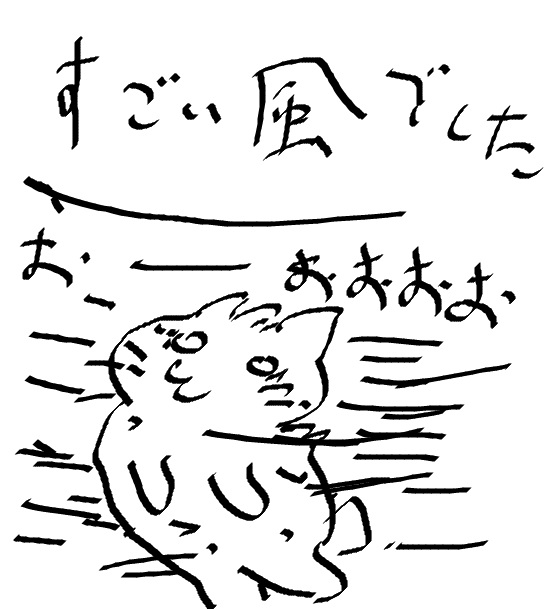 すごい風でした
お ー おおおお